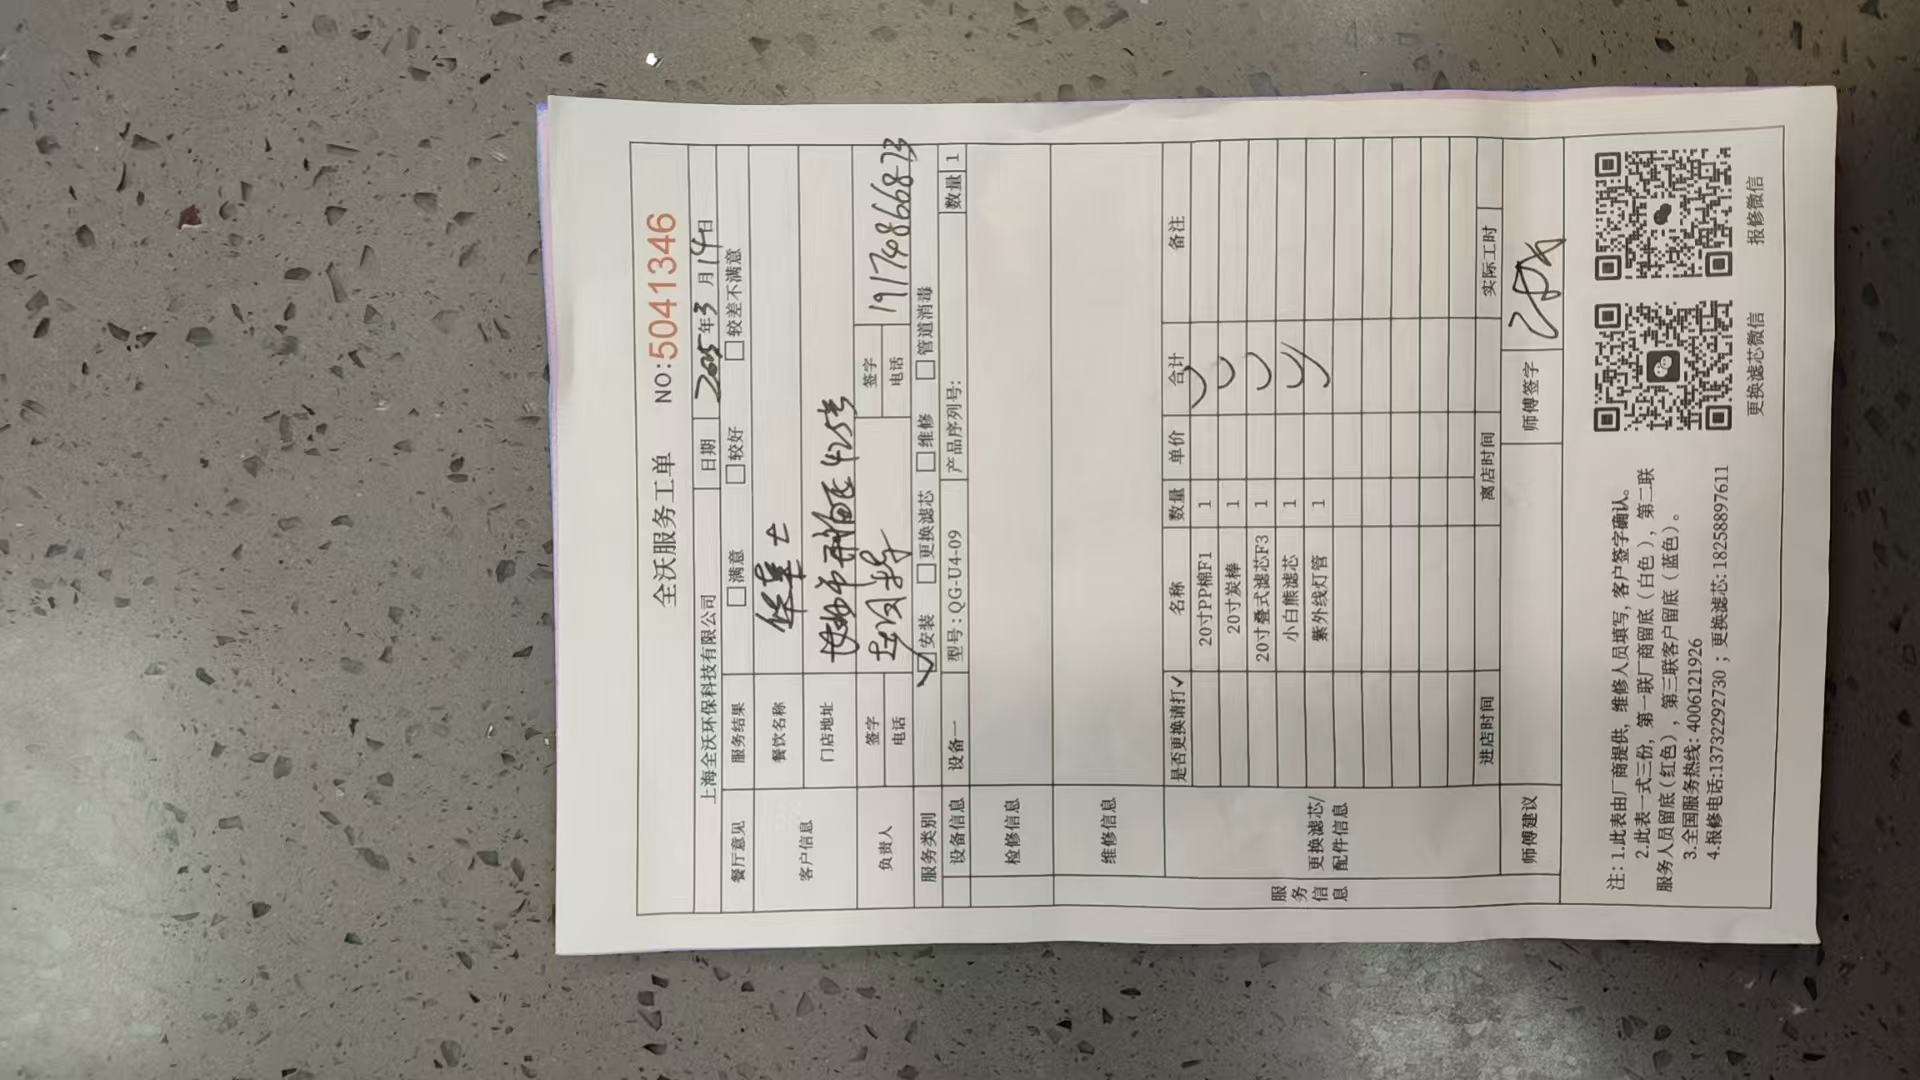 全沃服务工单 NO:5041346
上海全沃环保科技有限公司 日期 2025年3月14日
餐厅意见 服务结果 满意 较好 较差不满意
客户信息 餐饮名称
门店地址 425号
负责人 签字 签字
电话 电话
19174866873
服务类别 安装 更换滤芯 维修 管道消毒
设备信息 设备一 型号:QG-U4-09 产品序列号: 数量 1
检修信息
维修信息
服务信息
更换滤芯/配件信息
是否更换请打✓ 名称 数量 单价 合计 备注
20寸PP棉F1 1
20寸炭棒 1
20寸叠式滤芯F3 1
小白熊滤芯 1
紫外线灯管 1
进店时间 离店时间 实际工时
师傅建议 师傅签字
注:1.此表由厂商提供,维修人员填写,客户签字确认。
2.此表一式三份,第一联厂商留底(白色),第二联
服务人员留底(红色),第三联客户留底(蓝色)。
3.全国服务热线:4006121926
4.报修电话:13732292730;更换滤芯:18258897611
更换滤芯微信 报修微信